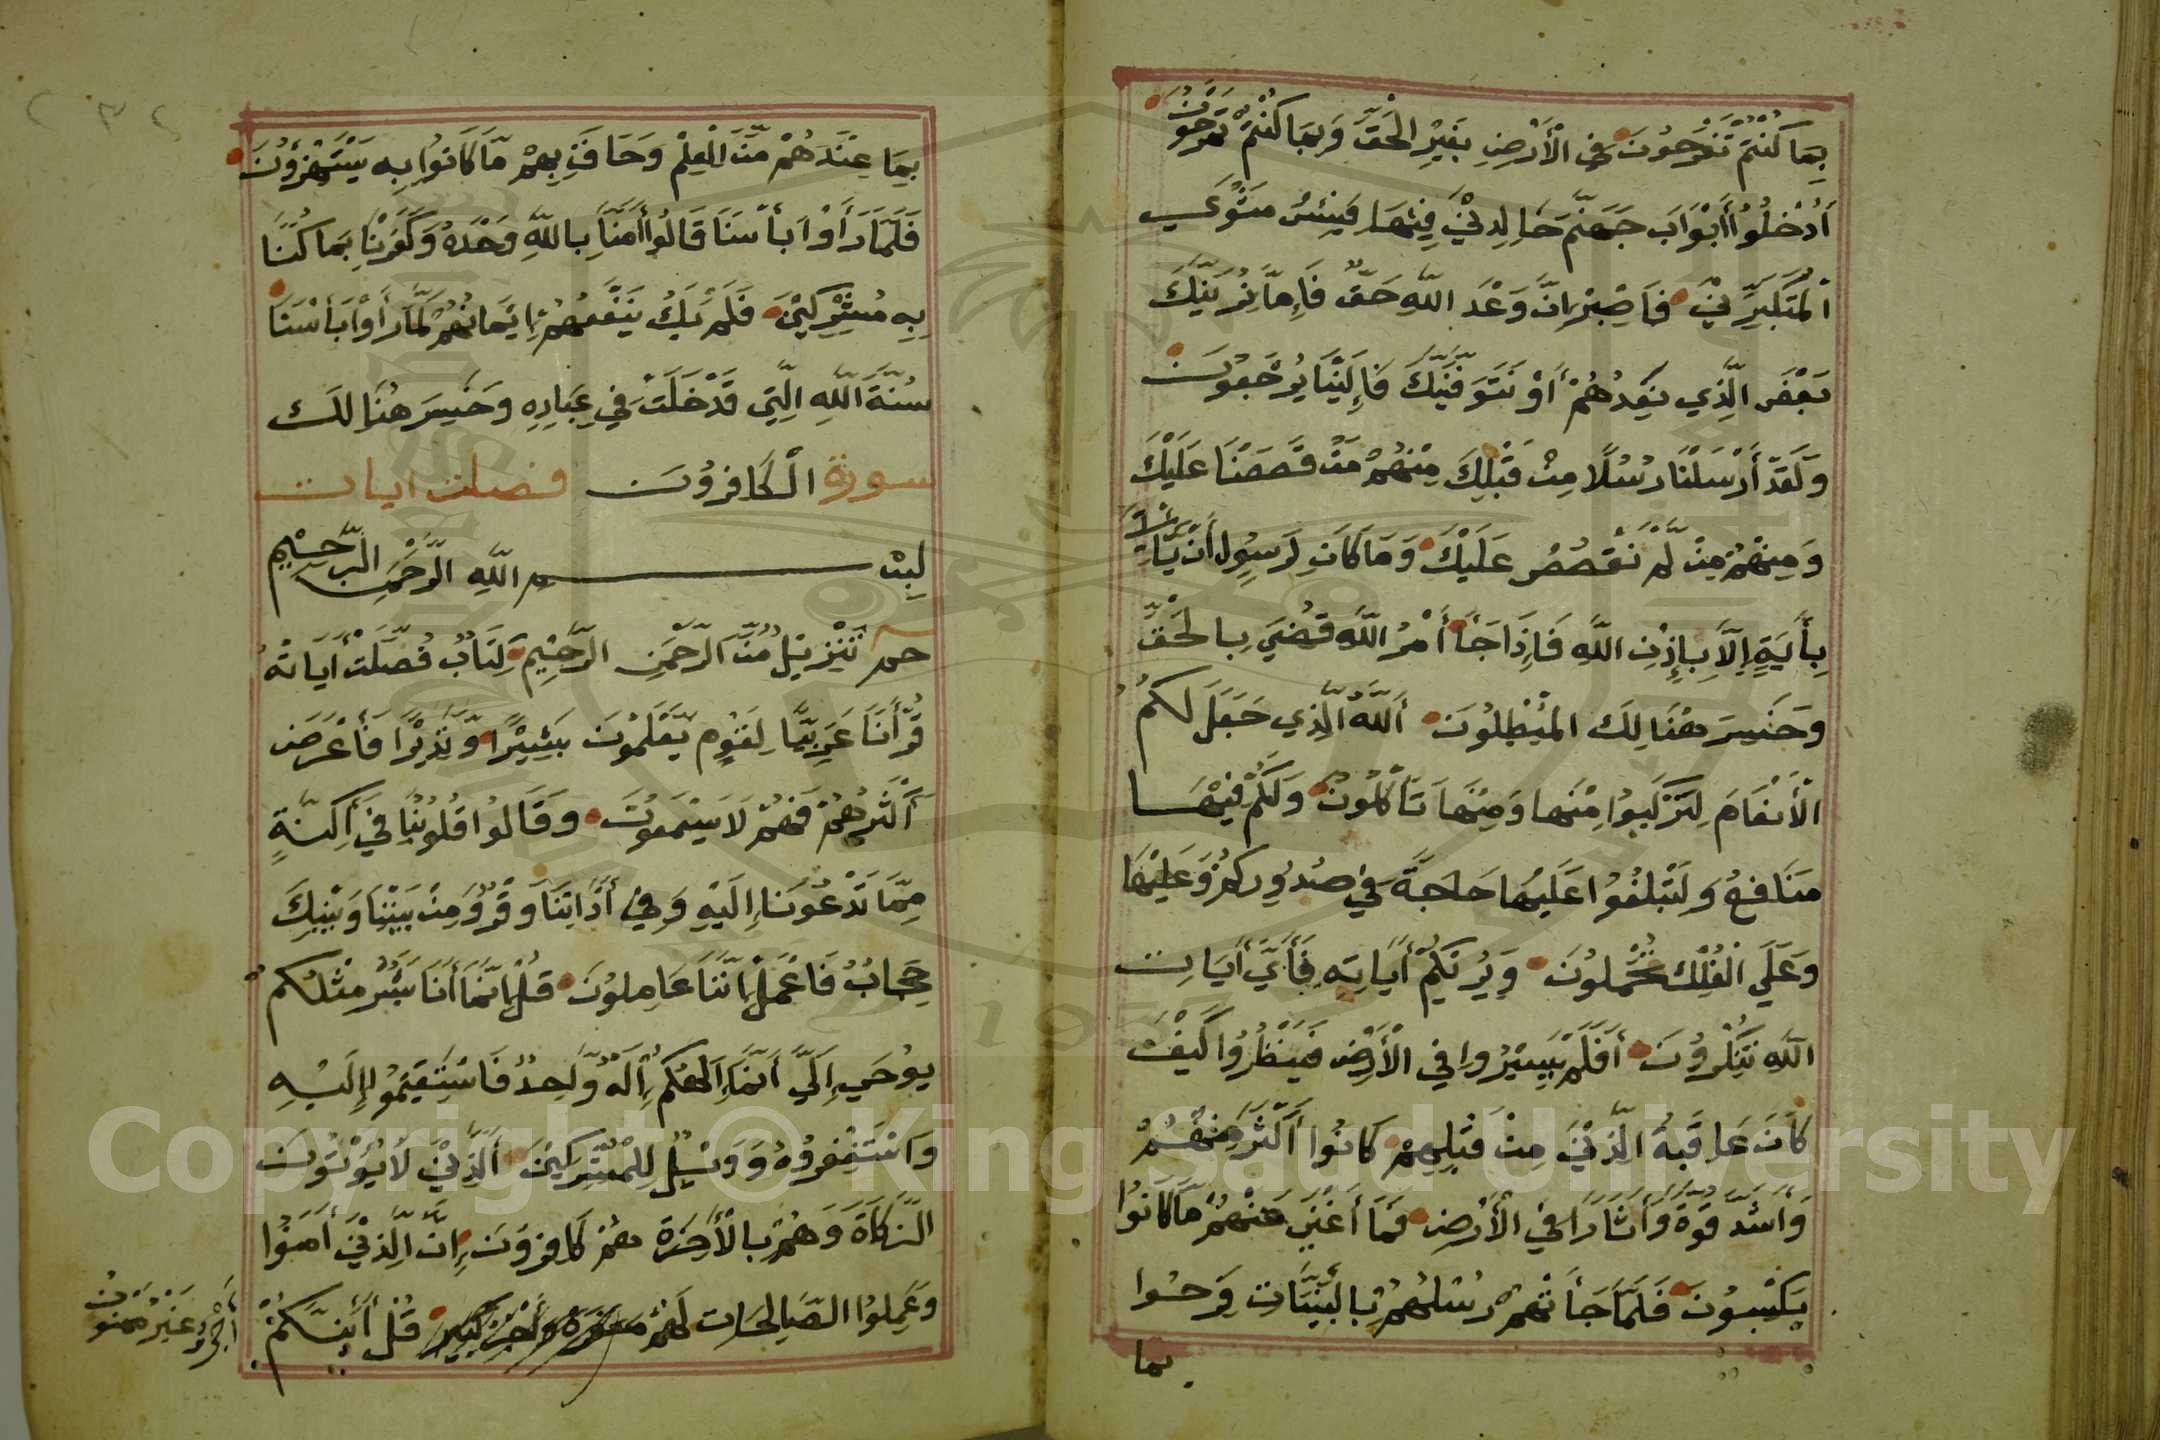 بِمَا كُنْتُمْ تَفْرَحُونَ فِي الْأَرْضِ بِغَيْرِ الْحَقِّ وَبِمَا كُنْتُمْ تَمْرَحُونَ
أُدْخُلُوا أَبْوَابَ جَهَنَّمَ خَالِدِيْنَ فِيْهَا فَبِئْسَ مَثْوَي
الْمُتَكَبِّرِيْنَ فَاصْبِرْ اِنَّ وَعْدَ اللَّهِ حَقٌّ فَإِمَّا نُرِيَنَّكَ
بَعْضَ الَّذِي نَعِدُهُمْ أَوْ نَتَوَفَّيَنَّكَ فَإِلَيْنَا يُرْجَعُونَ
وَلَقَدْ أَرْسَلْنَا رُسُلًا مِنْ قَبْلِكَ مِنْهُمْ مَنْ قَصَصْنَا عَلَيْكَ
وَمِنْهُمْ مَنْ لَّمْ نَقْصُصْ عَلَيْكَ وَمَا كَانَ لِرَسُولٍ أَنْ يَّأْتِيَ
بِأَيَةٍ إِلَّا بِإِذْنِ اللَّهِ فَإِذَا جَأَ أَمْرُ اللَّهِ قُضِيَ بِالْحَقِّ
وَخَسِرَ هُنَالِكَ الْمُبْطِلُونَ أَللَّهُ الَّذِي جَعَلَ لَكُمُ
الْأَنْعَامَ لِتَرْكَبُوا مِنْهَا وَمِنْهَا تَأْكُلُونَ وَلَكُمْ فِيْهَا
مَنَافِعُ وَلِتَبْلُغُوا عَلَيْهَا حَاجَةً فِيْ صُدُورِكُمْ وَعَلَيْهَا
وَعَلَي الْفُلْكِ تُحْمَلُونَ وَيُرِيْكُمْ أَيَاتِهِ فَأَيَّ أَيَاتِ
اللَّهِ تُنْكِرُونَ أَفَلَمْ يَسِيْرُوا فِي الْأَرْضِ فَيَنْظُرُوا كَيْفَ
كَانَ عَاقِبَةُ الَّذِيْنَ مِنْ قَبْلِهِمْ كَانُوا أَكْثَرَ مِنْهُمْ
وَأَشَدَّ قُوَّةً وَأَثَارًا فِي الْأَرْضِ فَمَا أَغْنَي عَنْهُمْ مَا كَانُوا
يَكْسِبُونَ فَلَمَّا جَأَتْهُمْ رُسُلُهُمْ بِالْبَيِّنَاتِ فَرِحُوا
بما
بِمَا عِنْدَهُمْ مِّنَ الْعِلْمِ وَحَاقَ بِهِمْ مَّا كَانُوا بِهِ يَسْتَهْزِؤُنَ
فَلَمَّا رَأَوْا بَأْسَنَا قَالُوا أَمَنَّا بِاللَّهِ وَحْدَهُ وَكَفَرْنَا بِمَا كُنَّا
بِهِ مُشْرِكِيْنَ فَلَمْ يَكُ يَنْفَعُهُمْ إِيْمَانُهُمْ لَمَّا رَأَوْا بَأْسَنَا
سُنَّةَ اللَّهِ الَّتِي قَدْ خَلَتْ فِي عِبَادِهِ وَخَسِرَ هُنَالِكَ
سورة الْكَافِرُونَ فصلت ايات
بِسْمِ اللَّهِ الرَّحْمَنِ الرَّحِيْمِ
حم تَنْزِيْلٌ مِّنَ الرَّحْمَنِ الرَّحِيْمِ كِتَابٌ فُصِّلَتْ أَيَاتُهُ
قُرْأَنَا عَرَبِيًّا لِقَوْمٍ يَّعْلَمُونَ بَشِيْرًا وَّنَذِيْرًا فَأَعْرَضَ
أَكْثَرُهُمْ فَهُمْ لَا يَسْمَعُونَ وَقَالُوا قُلُوبُنَا فِي أَكِنَّةٍ
مِمَّا تَدْعُونَا إِلَيْهِ وَفِي أَذَانِنَا وَقْرٌ وَمِنْ بَيْنِنَا وَبَيْنِكَ
حِجَابٌ فَاعْمَلْ إِنَّنَا عَامِلُونَ قُلْ إِنَّمَا أَنَا بَشَرٌ مِثْلُكُمْ
يُوحَي إِلَيَّ أَنَّمَا إِلَهُكُمْ إِلَهٌ وَّاحِدٌ فَاسْتَقِيْمُوا إِلَيْهِ
وَاسْتَغْفِرُوهُ وَوَيْلٌ لِلْمُشْرِكِيْنَ أَلَّذِيْنَ لَا يُؤْتُونَ
الزَّكَاةَ وَهُمْ بِالْأَخِرَةِ هُمْ كَافِرُونَ إِنَّ الَّذِيْنَ أَمَنُوا
وَعَمِلُوا الصَّالِحَاتِ لَهُمْ مغفرة وأجر كبير قُلْ أَئِنَّكُمْ
أَجْرٌ غَيْرُ مَمْنُونٍ
Copyright © King Saud University